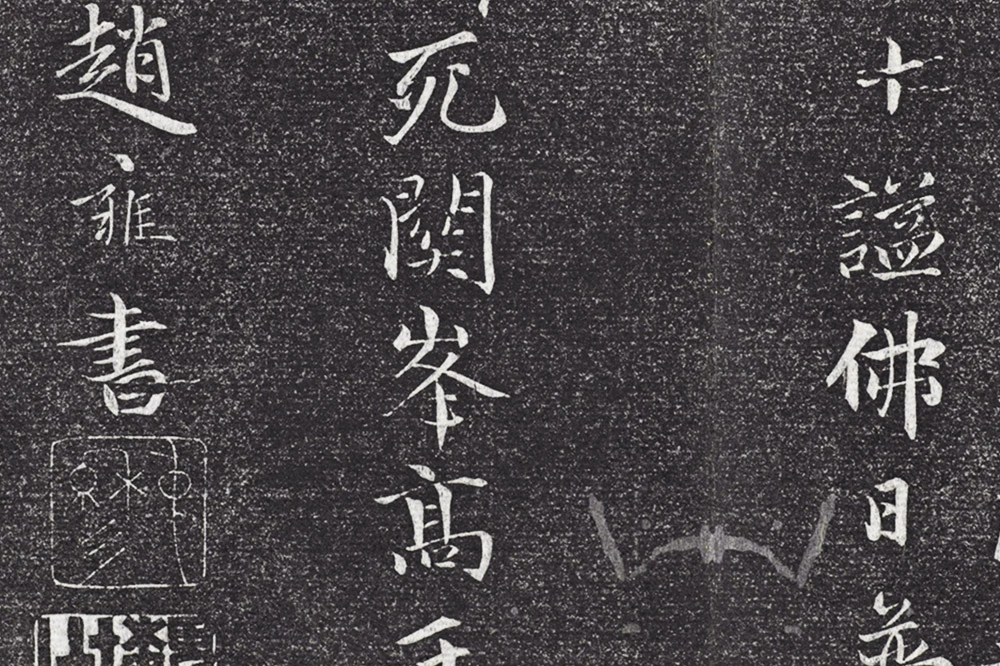 十謚佛日普
死関峯高千
趙雍書